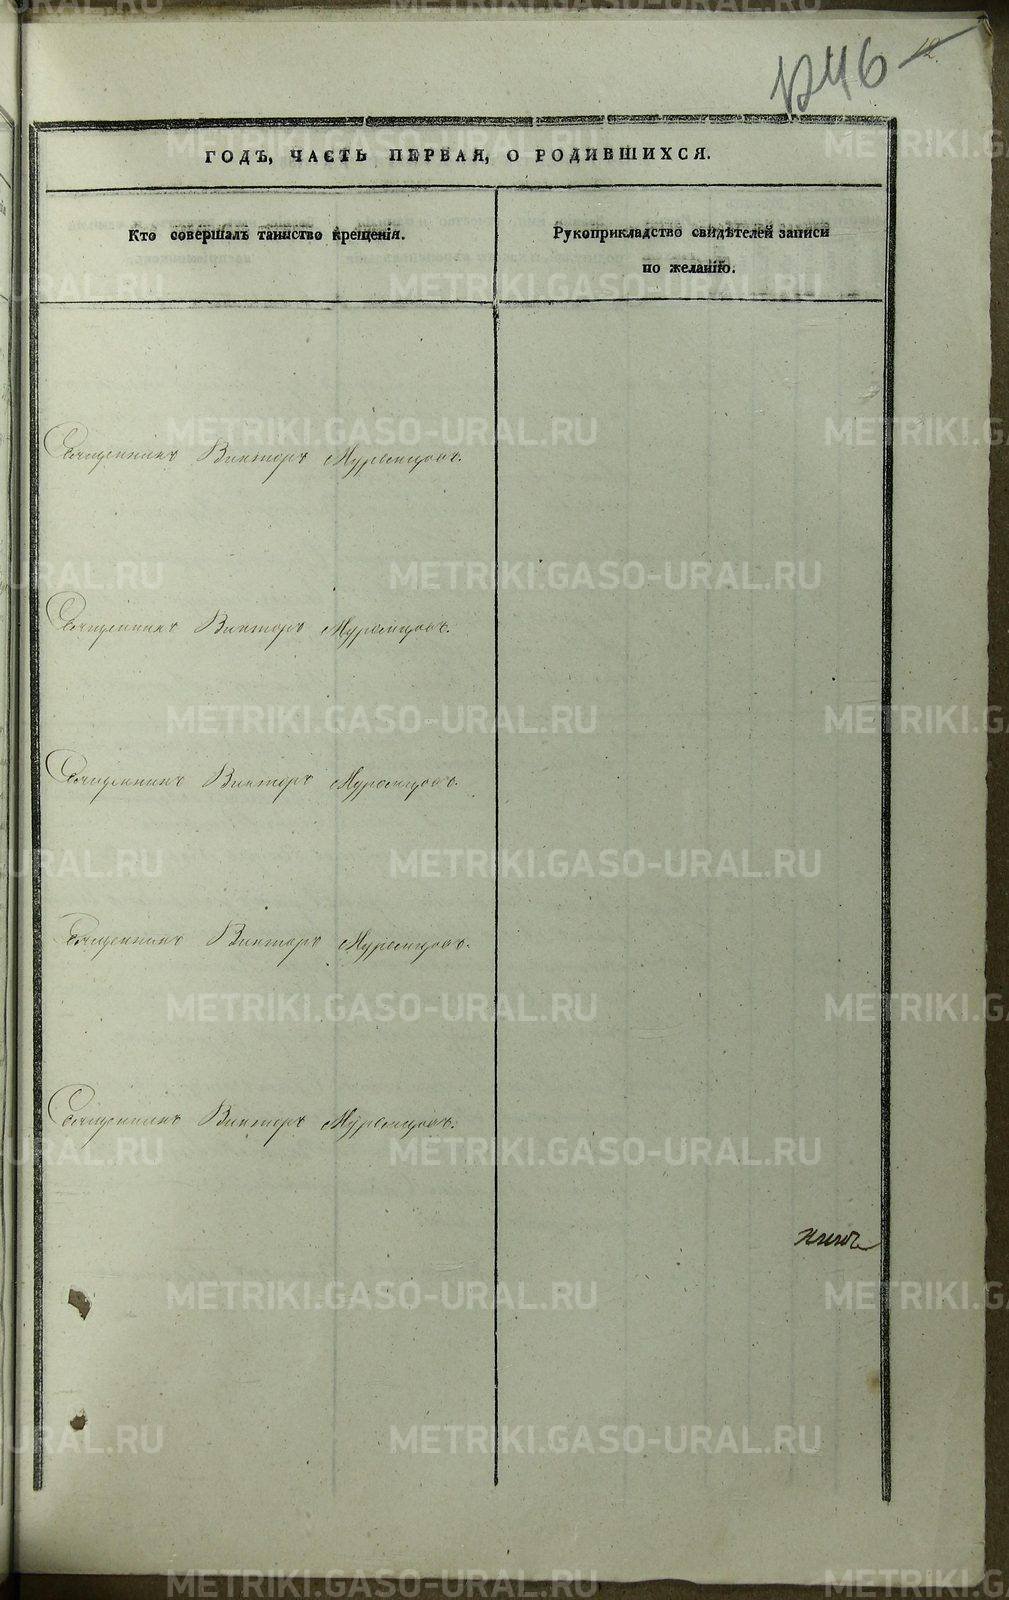 12
1246
ГОДЪ, ЧАСТЬ ПЕРВАЯ, О РОДИВШИХСЯ.
Кто совершалъ таинство крещенія.
Рукоприкладство свидѣтелей записи
по желанію.
Священникъ Викторъ Муромцовъ.
Священникъ Викторъ Муромцовъ.
Священникъ Викторъ Муромцовъ.
Священникъ Викторъ Муромцовъ.
Священникъ Викторъ Муромцовъ.
METRIKI.GASO-URAL.RU